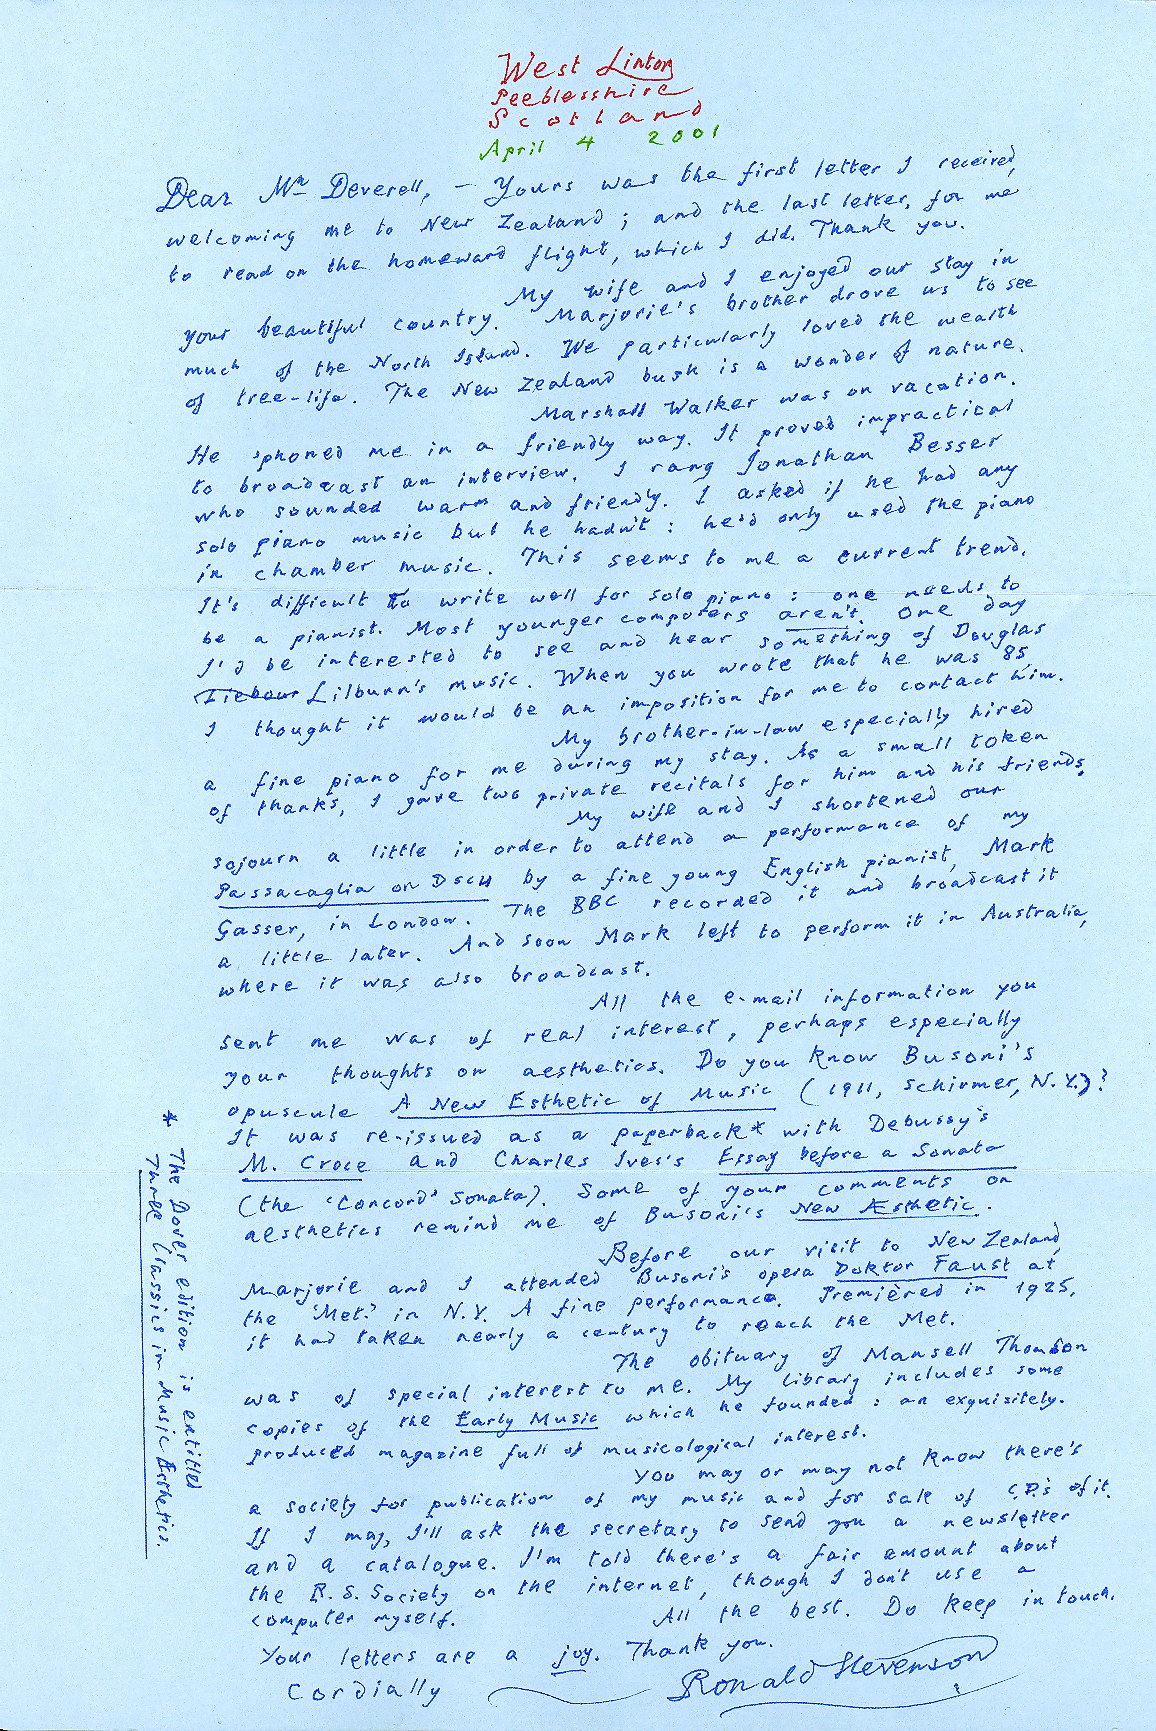 West Linton
Peeblesshire
Scotland
April 4 2001
Dear Mr Deverell, – Yours was the first letter I received,
welcoming me to New Zealand; and the last letter, for me
to read on the homeward flight, which I did. Thank you.
My wife and I enjoyed our stay in
your beautiful country. Marjorie's brother drove us to see
much of the North Island. We particularly loved the wealth
of tree-life. The New Zealand bush is a wonder of nature.
Marshall Walker was on vacation.
He 'phoned me in a friendly way. It proved impractical
to broadcast an interview. I rang Jonathan Besser
who sounded warm and friendly. I asked if he had any
solo piano music but he hadn't: he'd only used the piano
in chamber music. This seems to me a current trend.
It's difficult to write well for solo piano: one needs to
be a pianist. Most younger composers aren't. One day
I'd be interested to see and hear something of Douglas
Lilburn's music. When you wrote that he was 85,
I thought it would be an imposition for me to contact him.
My brother-in-law especially hired
a fine piano for me during my stay. As a small token
of thanks, I gave two private recitals for him and his friends.
My wife and I shortened our
sojourn a little in order to attend a performance of my
Passacaglia on DSCH by a fine young English pianist, Mark
Gasser, in London. The BBC recorded it and broadcast it
a little later. And soon Mark left to perform it in Australia,
where it was also broadcast.
All the e-mail information you
sent me was of real interest, perhaps especially
your thoughts on aesthetics. Do you know Busoni's
opuscule A New Esthetic of Music (1911, Schirmer, N.Y.)?
It was re-issued as a paperback* with Debussy's
M. Croce and Charles Ives's Essay before a Sonata
(the 'Concord' Sonata). Some of your comments on
aesthetics remind me of Busoni's New Æsthetic.
Before our visit to New Zealand,
Marjorie and I attended Busoni's opera Doktor Faust at
the 'Met.' in N.Y. A fine performance. Premièred in 1925,
it had taken nearly a century to reach the Met.
The obituary of Mansell Thomson
was of special interest to me. My library includes some
copies of the Early Music which he founded: an exquisitely.
produced magazine full of musicological interest.
You may or may not know there's
a society for publication of my music and for sale of C.D's of it.
If I may, I'll ask the secretary to send you a newsletter
and a catalogue. I'm told there's a fair amount about
the R.S. Society on the internet, though I don't use a
computer myself. All the best. Do keep in touch.
Your letters are a joy. Thank you.
Cordially Ronald Stevenson
* The Dover edition is entitled
Three Classics in Music Esthetics.